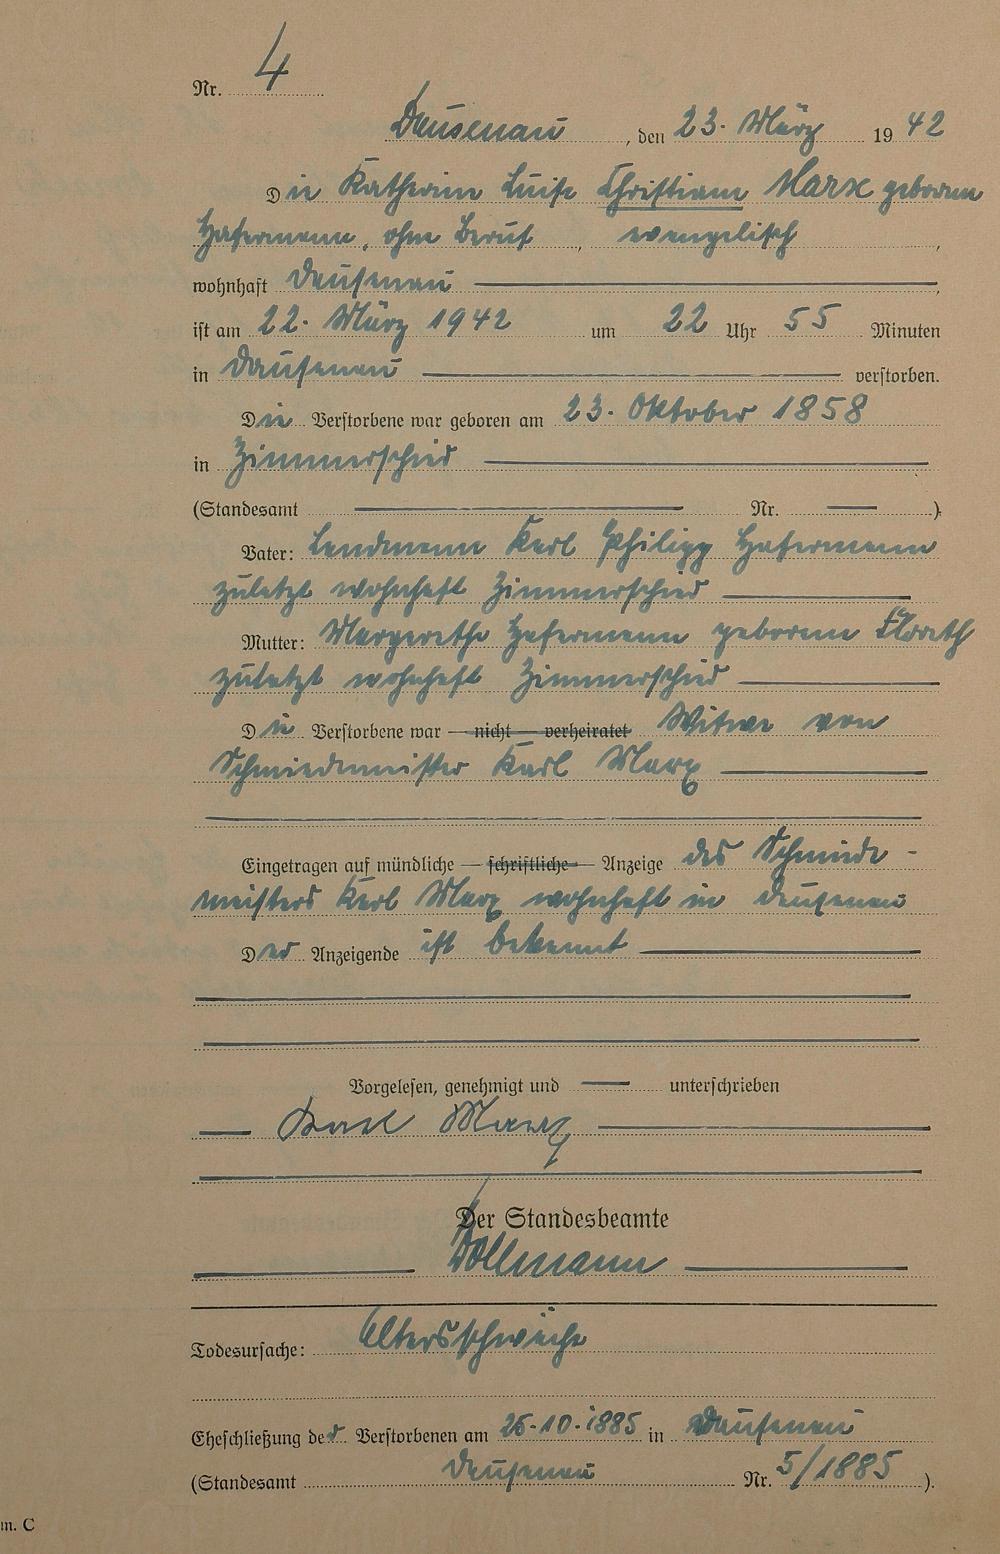 Nr. 4
Dausenau, den 23. März 1942
Die Katharine Luise Christiane Marx geborene
Hafermann, ohne Beruf, evangelisch,
wohnhaft Dausenau,
ist am 22. März 1942 um 22 Uhr 55 Minuten
in Dausenau verstorben.
Die Verstorbene war geboren am 23. Oktober 1858
in Zimmerschied
(Standesamt Nr. ).
Vater: Landmann Karl Philipp Hafermann
zuletzt wohnhaft Zimmerschied
Mutter: Margarethe Hafermann geborene
zuletzt wohnhaft Zimmerschied
Die Verstorbene war — nicht — verheiratet Witwe von
Schmiedmeister Karl Marx
Eingetragen auf mündliche — schriftliche — Anzeige des Schmiede-
meisters Karl Marx wohnhaft in Dausenau
Der Anzeigende ist bekannt
Vorgelesen, genehmigt und — unterschrieben
Karl Marx
Der Standesbeamte
Wollmann
Todesursache: Altersschwäche
Eheschließung der Verstorbenen am 25.10.1885 in Dausenau
(Standesamt Dausenau Nr. 5/1885).
m. C